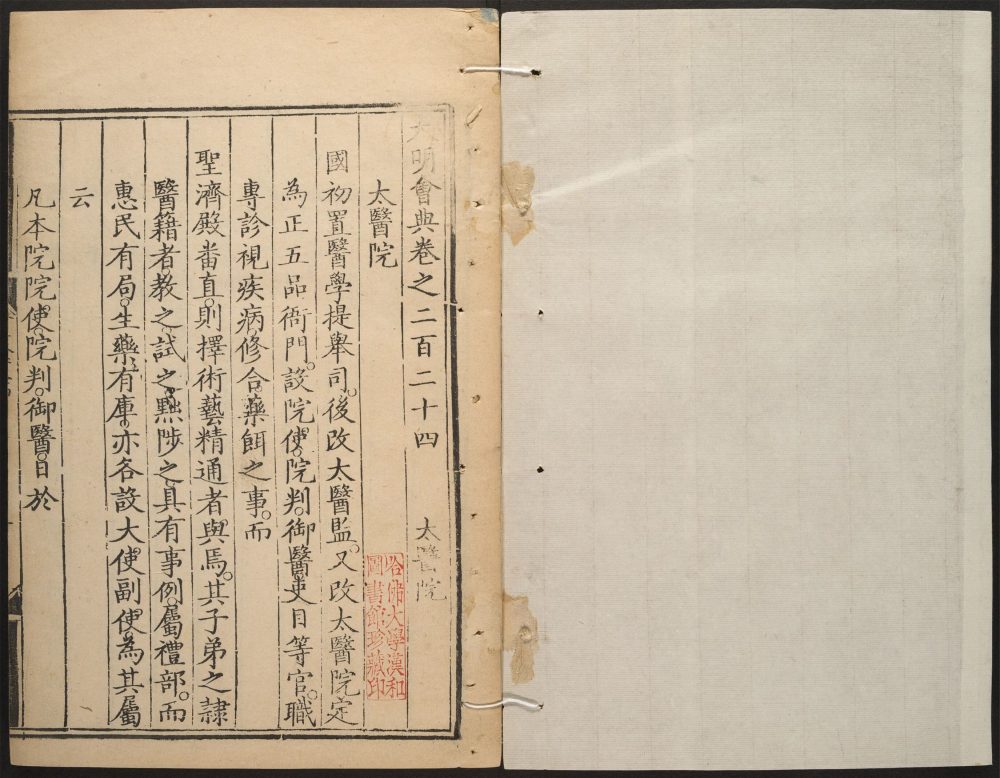 大明會典卷之二百二十四 太醫院
太醫院
國初置醫學提舉司。後改太醫監。又改太醫院定
為正五品衙門。設院使。院判。御醫吏目等官。職
專診視疾病。修合藥餌之事。而
聖濟殿番直。則擇術藝精通者與焉。其子弟之隸
醫籍者。教之。試之。黜陟之。具有事例。屬禮部。而
惠民有局。生藥有庫。亦各設大使副使。為其屬
云
凡本院院使。院判。御醫。日於
哈佛大學漢和
圖書館珍藏印